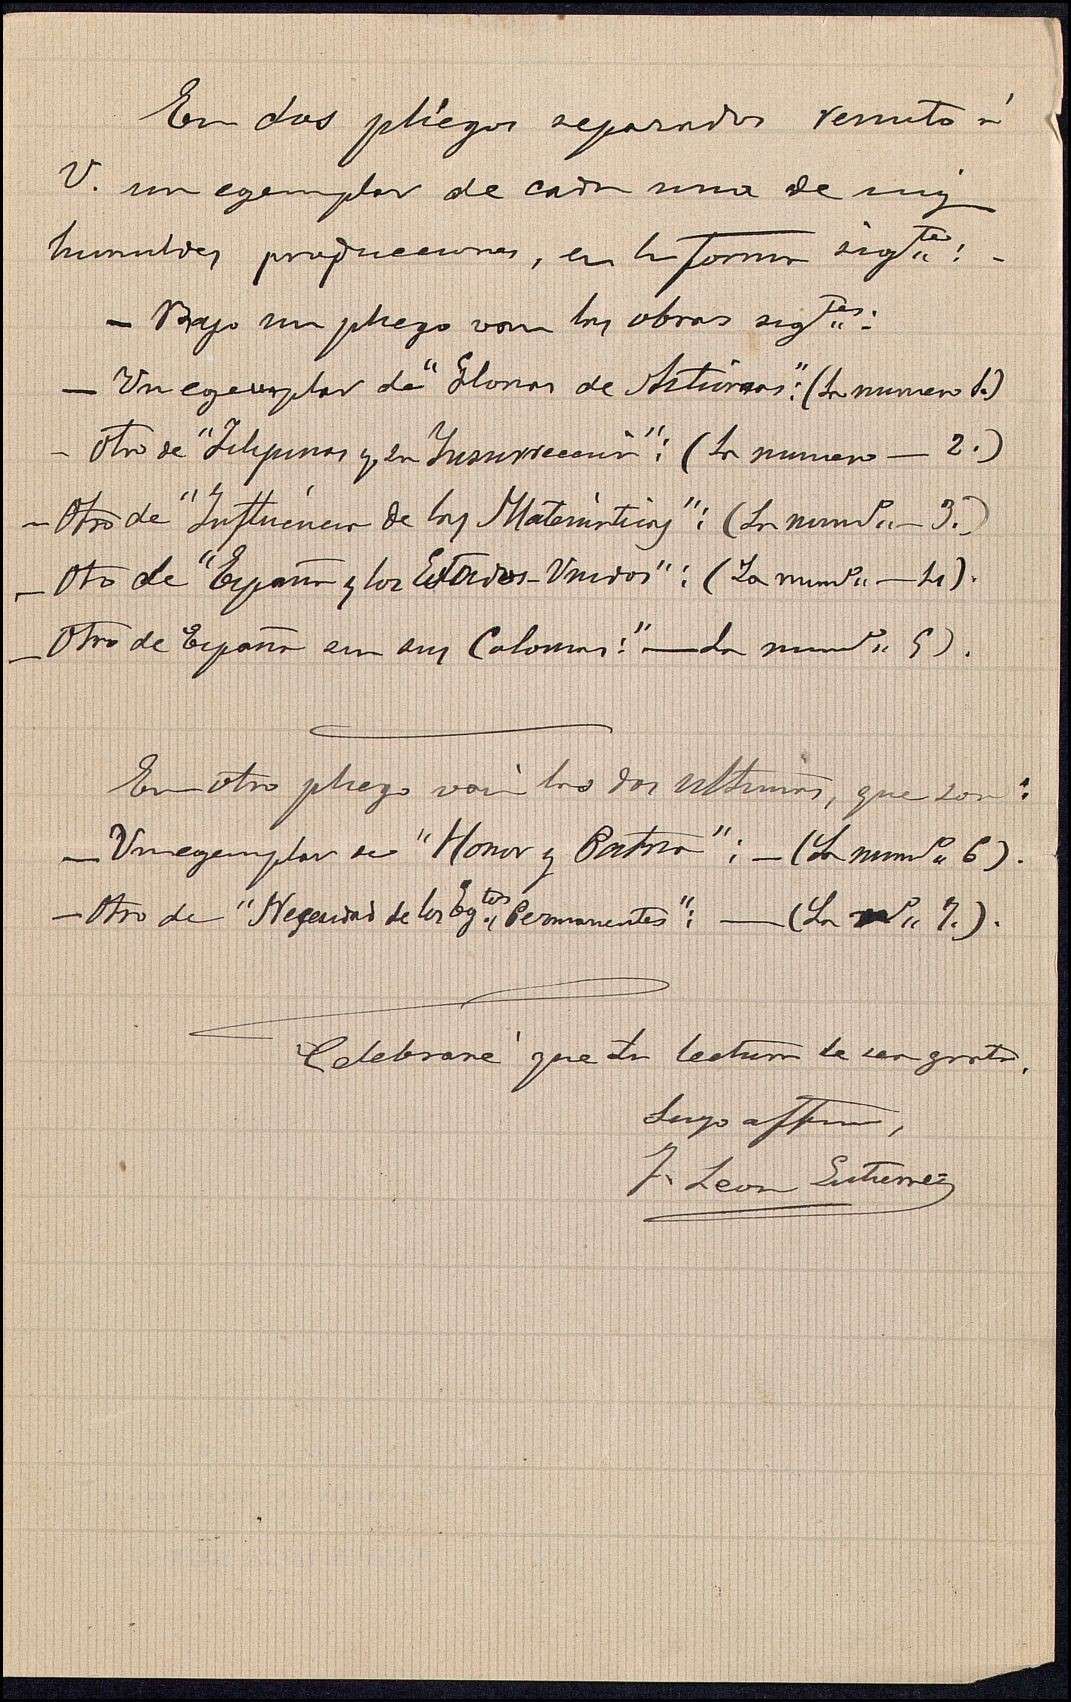 En dos pliegos separados remito á
V. un egemplar de cada una de mis
humildes producciones, en la forma sigte: -
- Bajo un pliego van las obras sigtes:
- Un egemplar de "Glorias de Asturias": (La numero 1.)
- Otro de "Filipinas y su Insurrección": (La numero - 2.)
- Otro de "Influéncia de las Matemáticas": (La numo - 3.)
- Otro de "España y los Estados-Unidos": (La numo - 4).
- Otro de España sin sus Colonias:" - La numo 5).
En otro pliego ván las dos ultimas, que son:
- Un egemplar de "Honor y Patria": - (La numo 6).
- Otro de "Necesidad de los Egtos Permanentes": - (La no 7.).
Celebraré que su lectura le sea grata.
Suyo affmo,
J. Leon Gutierrez